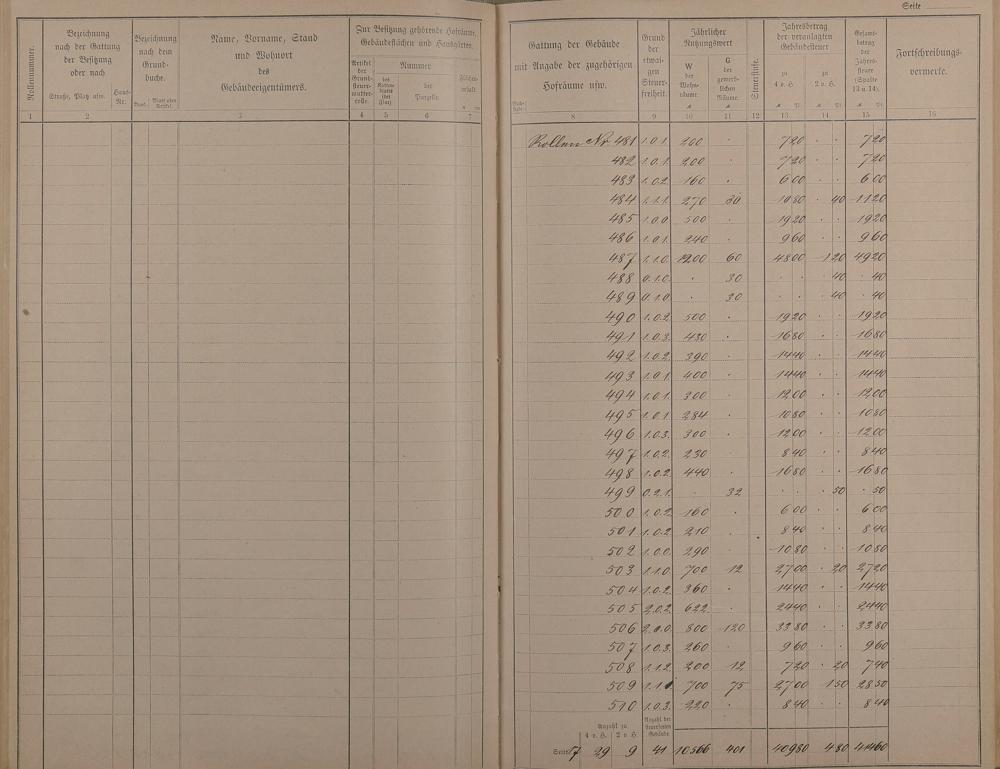 Seite
Rollennummer.
Bezeichnung
nach der Gattung
der Besitzung
oder nach
Straße, Platz usw.
Haus-
Nr.
Bezeichnung
nach dem
Grund-
buche.
Band.
Blatt oder
Artikel.
Name, Vorname, Stand
und Wohnort
des
Gebäudeeigentümers.
Zur Besitzung gehörende Hofräume,
Gebäudeflächen und Hausgärten.
Artikel
der
Grund-
steuer-
mutter-
rolle.
Nummer
des
Karten-
blattes
(der
Flur)
der
Parzelle.
Flächen-
inhalt
1 2 3 4 5 6 7
Gattung der Gebäude
mit Angabe der zugehörigen
Hofräume usw.
Grund
der
etwai-
gen
Steuer-
freiheit.
Jährlicher
Nutzungswert
W
der
Wohn-
räume
G
der
gewerb-
lichen
Räume.
Steuerstufe.
Jahresbetrag
der veranlagten
Gebäudesteuer
zu
4 v. H.
zu
2 v. H.
Gesamt-
betrag
der
Jahres-
steuer
(Spalte
13 u. 14).
Fortschreibungs-
vermerke.
8 9 10 11 12 13 14 15 16
Rollen Nr. 481 1.0.1. 200 . 720 . . 720
482 1.0.1. 200 . 720 . . 720
483 1.0.2. 160 . 600 . . 600
484 1.1.1. 270 30 1080 . 40 1120
485 1.0.0. 500 . 1920 . . 1920
486 1.0.1. 240 . 960 . . 960
487 1.1.0. 1200 60 4800 120 4920
488 0.1.0. . 30 . . 40 . 40
489 0.1.0. . 30 . . 40 . 40
490 1.0.2. 500 . 1920 . . 1920
491 1.0.3. 430 . 1680 . . 1680
492 1.0.2. 390 . 1440 . . 1440
493 1.0.1. 400 . 1440 . . 1440
494 1.0.1. 300 . 1200 . . 1200
495 1.0.1. 284 . 1080 . . 1080
496 1.0.3. 300 . 1200 . . 1200
497 1.0.2. 230 . 840 . . 840
498 1.0.2. 440 . 1680 . . 1680
499 0.2.1. . 32 . . 50 . 50
500 1.0.2. 160 . 600 . . 600
501 1.0.2. 210 . 840 . . 840
502 1.0.0. 290 . 1080 . . 1080
503 1.1.0. 700 12 2700 . 20 2720
504 1.0.2. 360 . 1440 . . 1440
505 2.0.2. 622 . 2440 . . 2440
506 2.0.0. 800 120 3380 . . 3380
507 1.0.3. 260 . 960 . . 960
508 1.1.2. 200 12 720 . 20 740
509 1.1. 700 75 2700 150 2850
510 1.0.3. 220 . 840 . . 840
Anzahl zu
4 v. H. 2 v. H.
Anzahl der
steuerfreien
Gebäude
Seite 17 29 9 41 10566 401 40980 480 41460